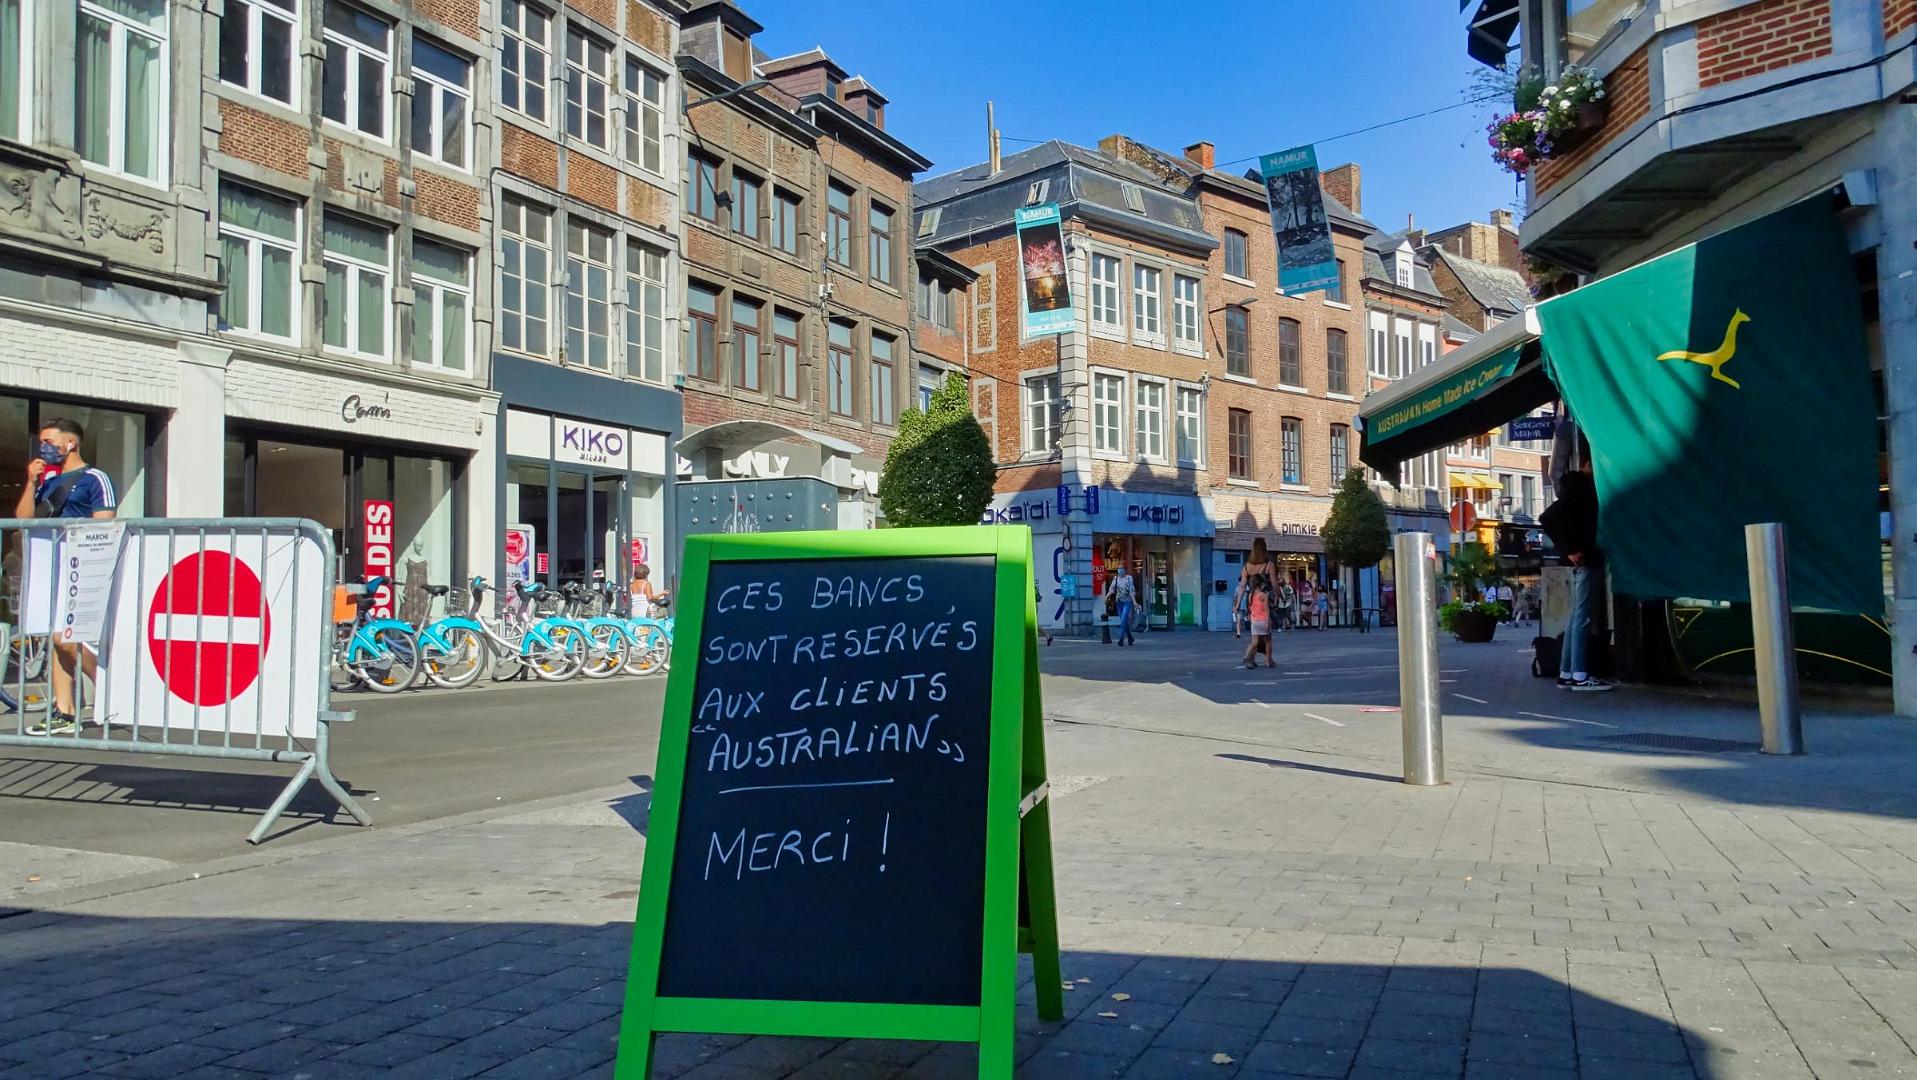 CES BANCS
SONT RESERVÉS
AUX CLiENTS
“AUSTRALiAN”
MERCi !
NAMUR
NAMUR
AUSTRALIAN Home Made Ice Cream
SerGent
MajoR
Cami
KIKO
MILANO
ONLY
SOLDES
okaïdi
okaïdi
pimkie
MARCHÉ